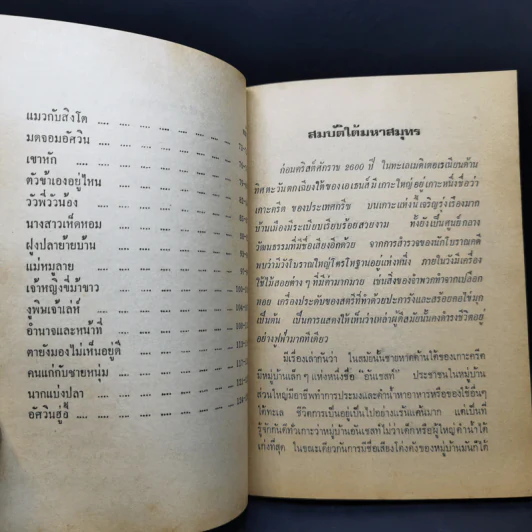 แมวกับสิงโต .... .... .... ....
มดจอมอัศวิน .... .... .... ....
เขาหัก .... .... .... ....
ตัวข้าเองอยู่ไหน .... .... .... ....
วัวพี่วัวน้อง .... .... .... ....
นางสาวเห็ดหอม .... .... .... ....
ฝูงปลาย้ายบ้าน .... .... .... ....
แม่หมูลาย .... .... .... ....
เจ้าหญิงขี่ม้าขาว .... .... .... ....
งูพิษเจ้าเล่ห์ .... .... .... ....
อำนาจและหน้าที่ .... .... .... ....
ตายังมองไม่เห็นอยู่ดี .... .... .... ....
คนแก่กับชายหนุ่ม .... .... .... ....
นากแบ่งปลา .... .... .... ....
อัศวินฮู่อี้ .... .... .... ....
สมบัติใต้มหาสมุทร
ก่อนคริสต์ศักราช 2000 ปี ในทะเลเมดิเตอเรเนียนด้าน
ทิศตะวันตกเฉียงใต้ของเอเธนส์มีเกาะใหญ่อยู่เกาะหนึ่งชื่อว่า
เกาะครีต ของประเทศกรีซ บนเกาะแห่งนี้เจริญรุ่งเรืองมาก
บ้านเมืองมีระเบียบเรียบร้อยสวยงาม ทั้งยังเป็นศูนย์กลาง
วัฒนธรรมที่มีชื่อเสียงอีกด้วย จากการสำรวจของนักโบราณคดี
พบว่ามีวังโบราณใหญ่โตรโหฐานอยู่แห่งหนึ่ง ภายในวังมีเครื่อง
ใช้ไม้สอยต่าง ๆ ที่มีค่ามากมาย เช่นสิ่งของจำพวกทำจากเปลือก
หอย เครื่องประดับของสตรีที่ทำด้วยปะการังและสร้อยคอไข่มุก
เป็นต้น เป็นการแสดงให้เห็นว่าเหล่าผู้ดีสมัยนั้นคงดำรงชีวิตอยู่
อย่างฟู่ฟ่ามากทีเดียว
มีเรื่องเล่ากันว่า ในสมัยนั้นชายหาดด้านใต้ของเกาะครีต
มีหมู่บ้านเล็กๆ แห่งหนึ่งชื่อ "อันเซสท์" ประชาชนในหมู่บ้าน
ส่วนใหญ่มีอาชีพทำการประมงและดำน้ำหาอาหารหรือของใช้อื่นๆ
ใต้ทะเล ชีวิตการเป็นอยู่เป็นไปอย่างแร้นแค้นมาก แต่เป็นที่
รู้จักกันดีทั่วเกาะว่าหมู่บ้านอันเซสท์ไม่ว่าเด็กหรือผู้ใหญ่ดำน้ำได้
เก่งที่สุด ในขณะเดียวกันการมีชื่อเสียงโด่งดังของหมู่บ้านมันก็ได้